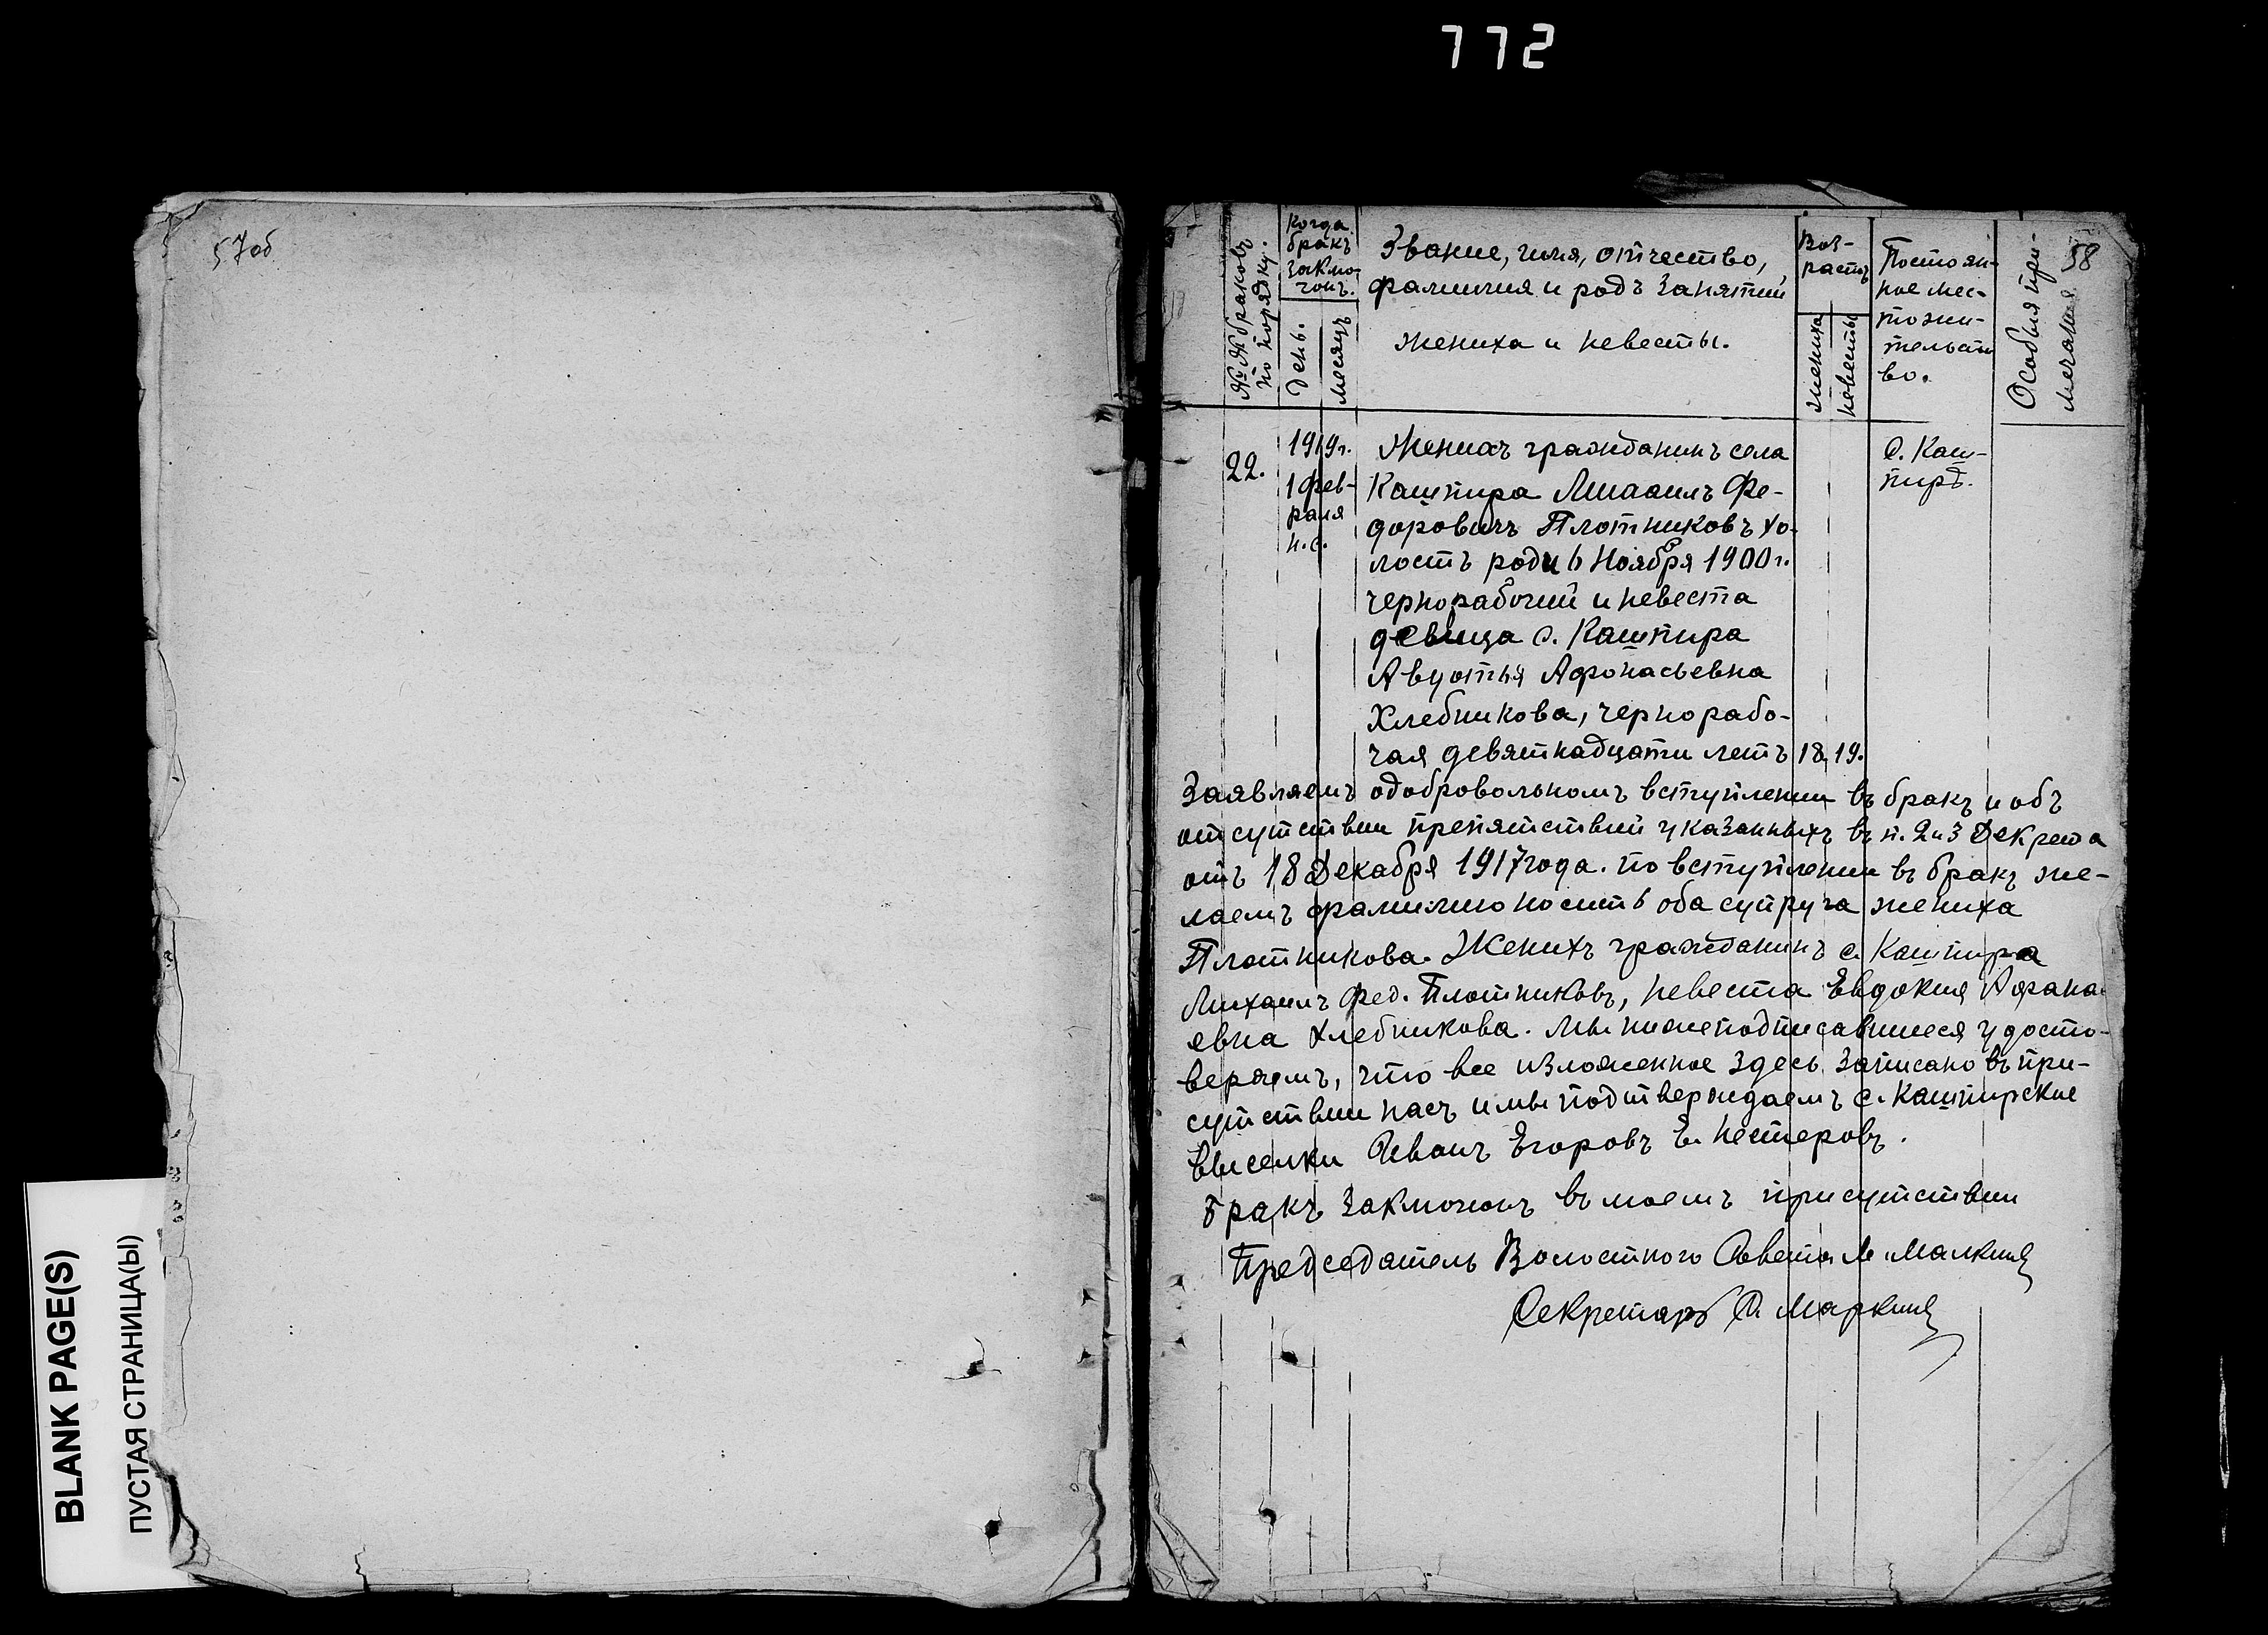 772
57об
BLANK PAGE(S)
ПУСТАЯ СТРАНИЦА(Ы)
58
№№ браковъ
по порядку.
Когда
бракъ
заклю-
чонъ.
День.
месяцъ
Звание, имя, отчество,
фамилия и родъ занятий
жениха и невесты.
Воз-
растъ
жениха
невесты
Постоян-
ное мес-
тожи-
тельст
во.
Особыя при-
мечания.
22.
1919г.
1 фев-
раля
н.с.
Женихъ гражданинъ села
Кашпира Михаилъ Фе-
доровичъ Плотниковъ хо-
лостъ роди 6 Ноября 1900г.
чернорабочий и невеста
девица с. Кашпира
Авдотья Афонасьевна
Хлебникова, чернорабо-
чая девятнадцати летъ
18
19.
С. Каш-
пиръ.
Заявляемъ одобровольномъ вступлении въ бракъ и объ
отсутствии препятствий указанныхъ въ п. 2и3 Декрета
отъ 18 Декабря 1917года. по вступлении въ бракъ же-
лаемъ фамилию носить оба супруга жениха
Плотникова. Женихъ гражданинъ с. Кашпира
Михаилъ Фед. Плотниковъ, невеста Евдокия Афана-
евна Хлебникова. Мы нижеподписавшиеся удосто-
веряемъ, что все изложенное здесь записано въ при-
сутствии насъ и мы подтверждаемъ с. Кашпирские
Выселки Иванъ Егоровъ Е. Нестеровъ.
Бракъ заключонъ въ моемъ присутствии
Председатель Волостного Совета М Малкинъ
Секретарь С. Маркинъ